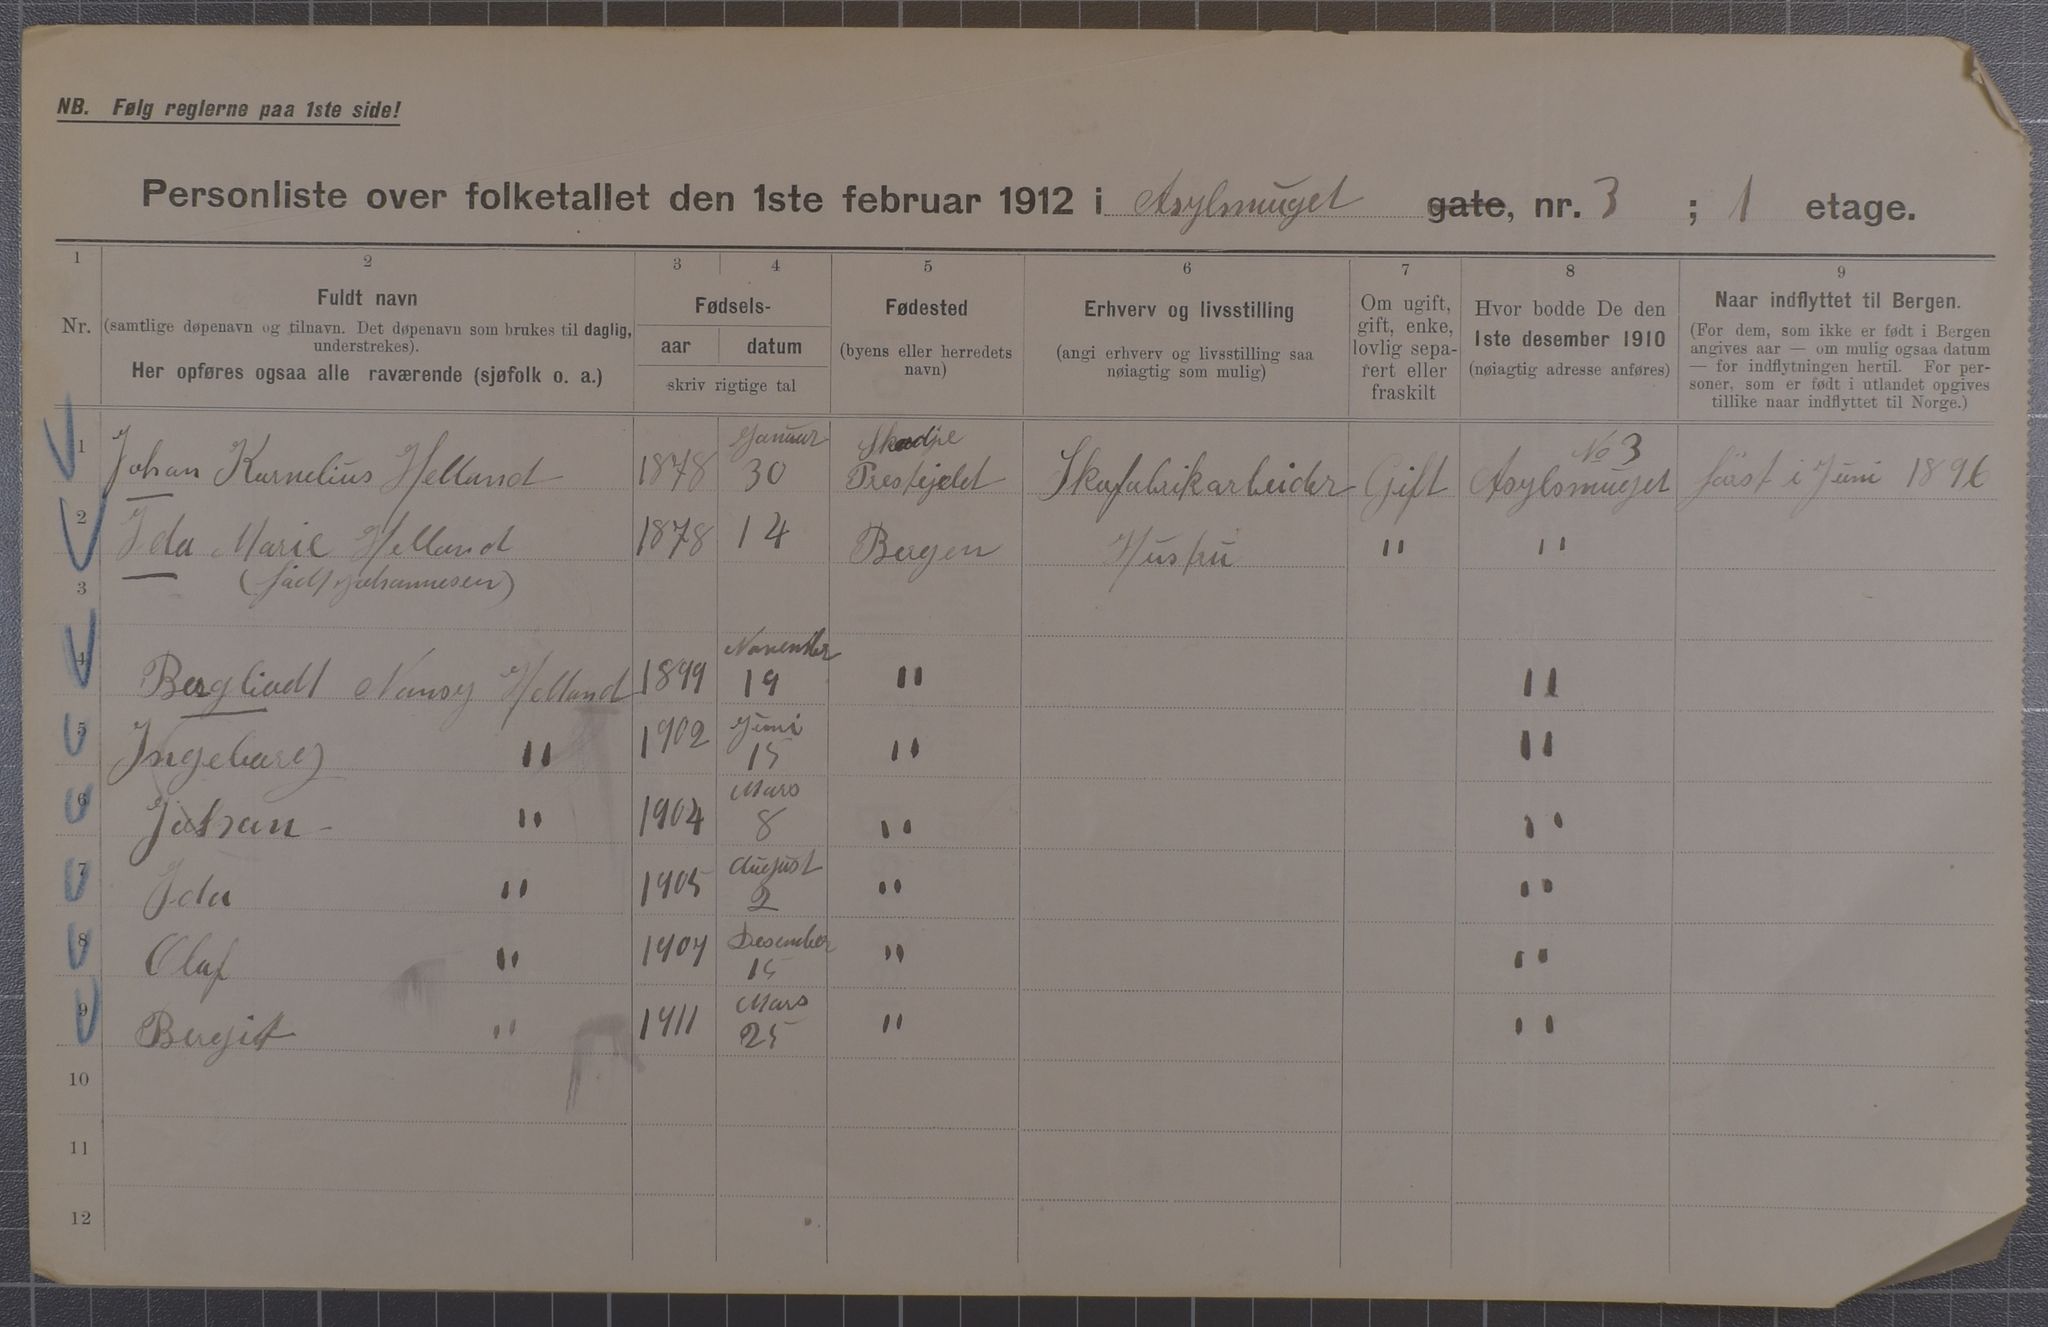 NB. Følg reglerne paa 1ste side!
Personliste over folketallet den 1ste februar 1912 i Asylsmuget gate, nr. 3 ; 1 etage.
1 2 3 4 5 6 7 8 9
Nr.
Fuldt navn
(samtlige døpenavn og tilnavn. Det døpenavn som brukes til daglig, understrekes).
Her opføres ogsaa alle raværende (sjøfolk o. a.)
Fødsels-
aar datum
skriv rigtige tal
Fødested
(byens eller herredets navn)
Erhverv og livsstilling
(angi erhverv og livsstilling saa nøiagtig som mulig)
Om ugift, gift, enke, lovlig sepa-rert eller fraskilt
Hvor bodde De den
1ste desember 1910
(nøiagtig adresse anføres)
Naar indflyttet til Bergen.
(For dem, som ikke er født i Bergen
angives aar — om mulig ogsaa datum
— for indflytningen hertil. For per-
soner, som er født i utlandet opgives
tillike naar indflyttet til Norge.)
Januar Skodje No 3
1 Johan Kornelius Helland 1878 30 Prestejeldet Skofabrikarbeider Gift Asylsmuget først i Juni 1896
2 Ida Marie Helland 1878 14 Bergen Hustru " "
3 (født Johannesen)
November
4 Bergliodt Nansy Helland 1899 19 " "
Juni
5 Ingeborg " 1902 15 " "
Mars
6 Johan " 1904 8 " "
August
7 Ida " 1905 2 " "
Desember
8 Olaf " 1907 15 " "
Mars
9 Bergit " 1911 25 " "
10
11
12